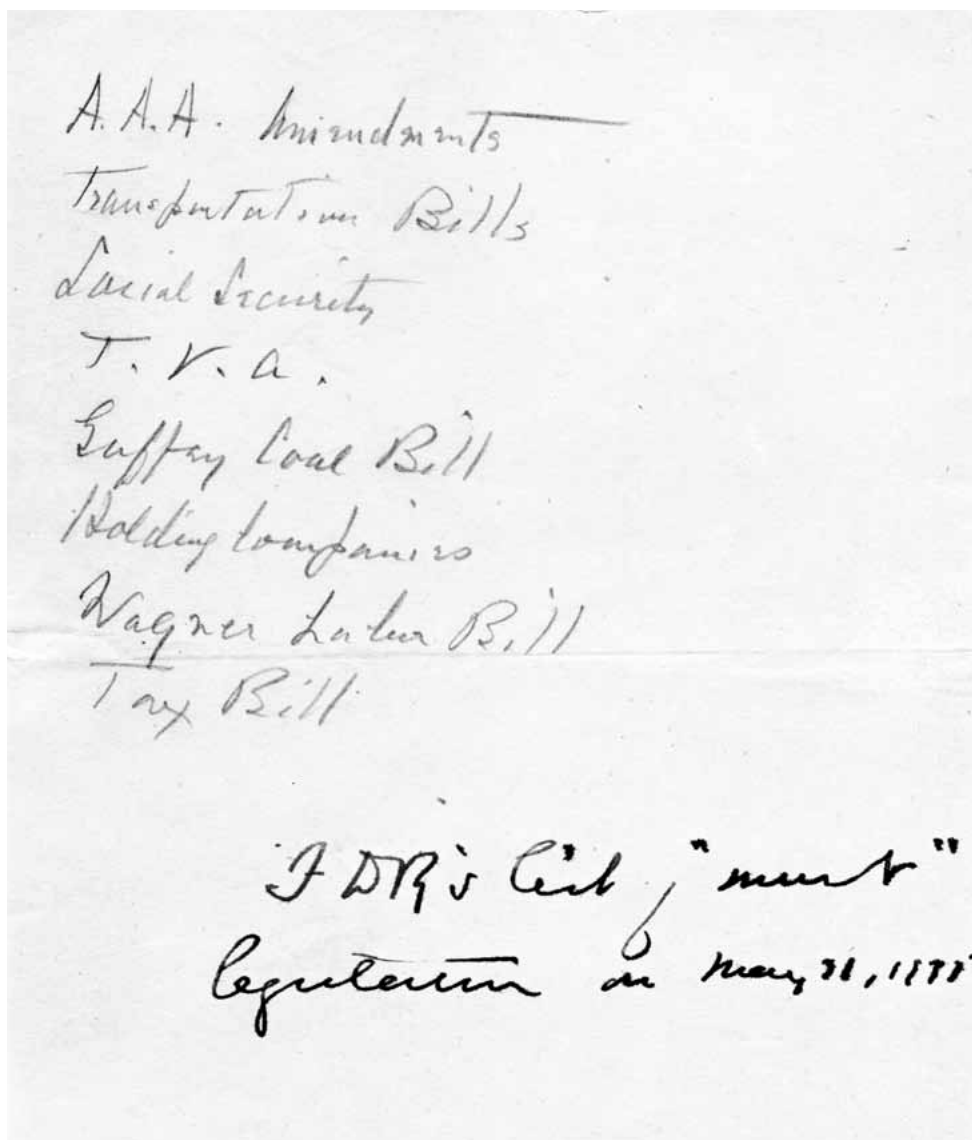 A.A.A. Amendments
Transportation Bills
Social Security
T.V.A.
Guffey Coal Bill
Holding Companies
Wagner Labor Bill
Tax Bill
FDR's list of "must"
legislation on May 31,